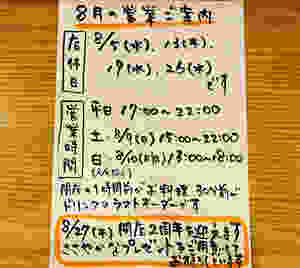 8月の営業ご案内
店休日
8/5(水)、13(木)、
19(水)、26(水)
です
営業時間
平日 17:00~22:00
土・8/9(日) 15:00~22:00
日・8/10(月祝) 13:00~18:00
閉店の1時間前がお料理、30分前が
ドリンクラストオーダーです
8/27(木) 開店2周年を迎えます
ささやかなプレゼントをご用意して
お待ちしています